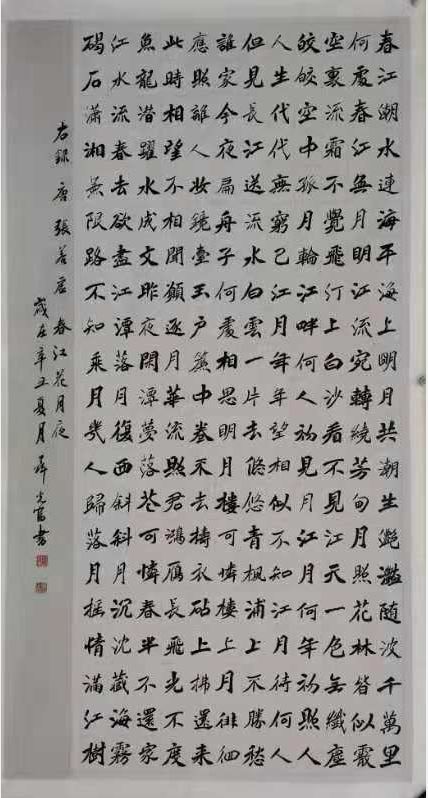 春江潮水連海平海上明月共潮生灩灩隨波千萬里
何處春江無月明江流宛轉繞芳甸月照花林皆似霰
空裏流霜不覺飛汀上白沙看不見江天一色無纖塵
皎皎空中孤月輪江畔何人初見月江月何年初照人
人生代代無窮已江月年年望相似不知江月待何人
但見長江送流水白雲一片去悠悠青楓浦上不勝愁
誰家今夜扁舟子何處相思明月樓可憐樓上月徘徊
應照離人妝鏡臺玉戶簾中卷不去擣衣砧上拂還來
此時相望不相聞願逐月華流照君鴻雁長飛光不度
魚龍潛躍水成文昨夜閑潭夢落花可憐春半不還家
江水流春去欲盡江潭落月復西斜斜月沉沉藏海霧
碣石瀟湘無限路不知乘月幾人歸落月搖情滿江樹
右錄唐張若虛春江花月夜
歲在辛丑夏月